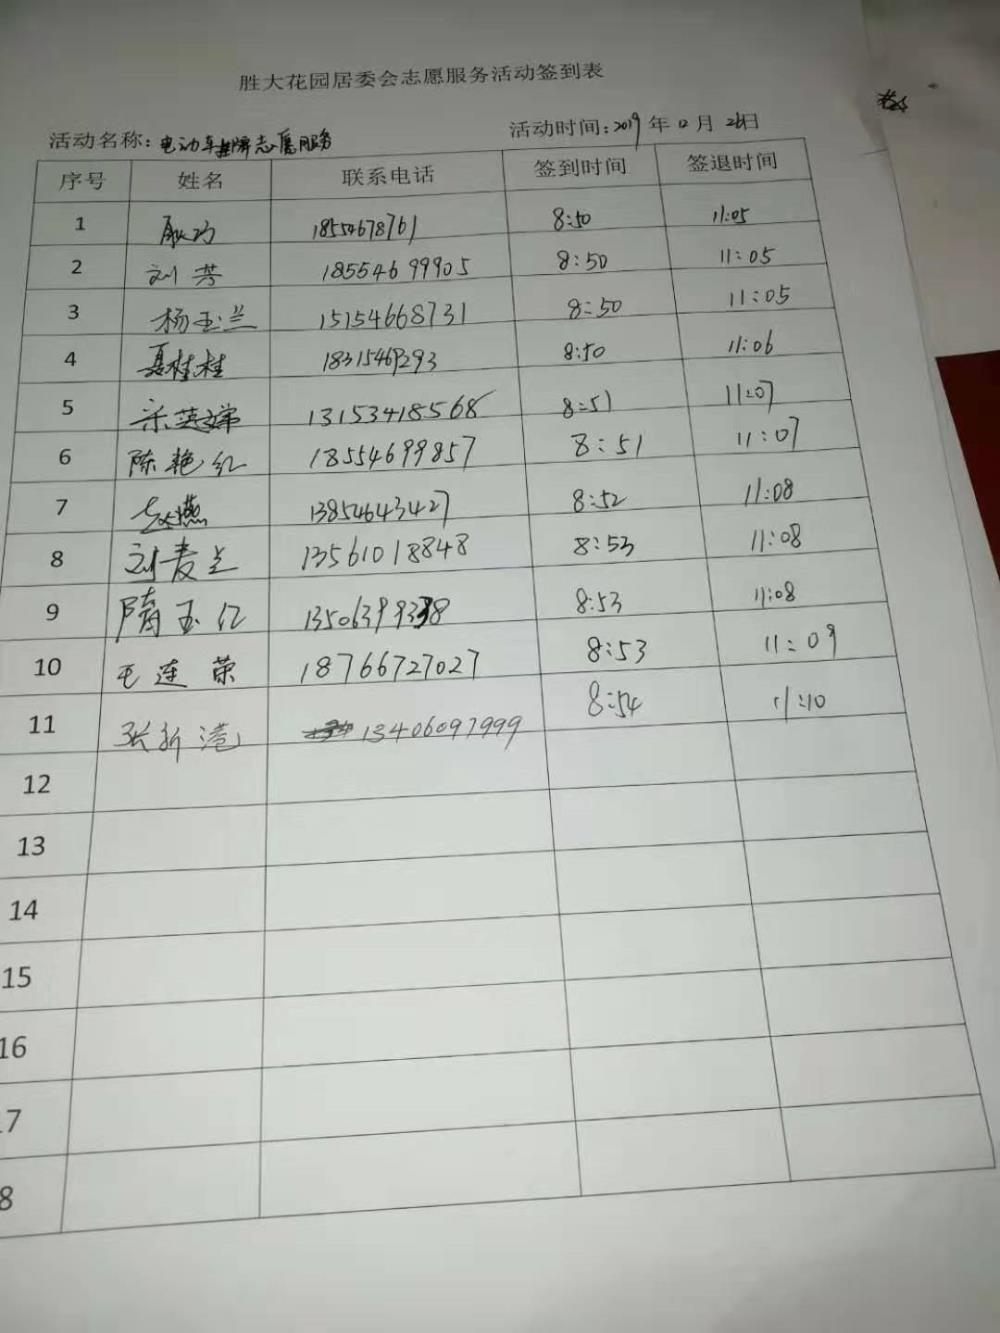 胜大花园居委会志愿服务活动签到表
活动名称：电动车挂牌志愿服务 活动时间：2019年12月26日
序号 姓名 联系电话 签到时间 签退时间
1 18554678761 8:50 11:05
2 刘芳 18554699905 8:50 11:05
3 杨玉兰 15154668731 8:50 11:05
4 聂桂桂 8:50 11:06
5 宋英娣 13153418568 8:51 11:07
6 陈艳红 18554699857 8:51 11:07
7 赵燕 13854643427 8:52 11:08
8 刘麦兰 13561018848 8:53 11:08
9 隋玉红 8:53 11:08
10 毛连荣 18766727027 8:53 11:09
11 张新港 13406097999 8:54 11:10
12
13
14
15
16
7
8